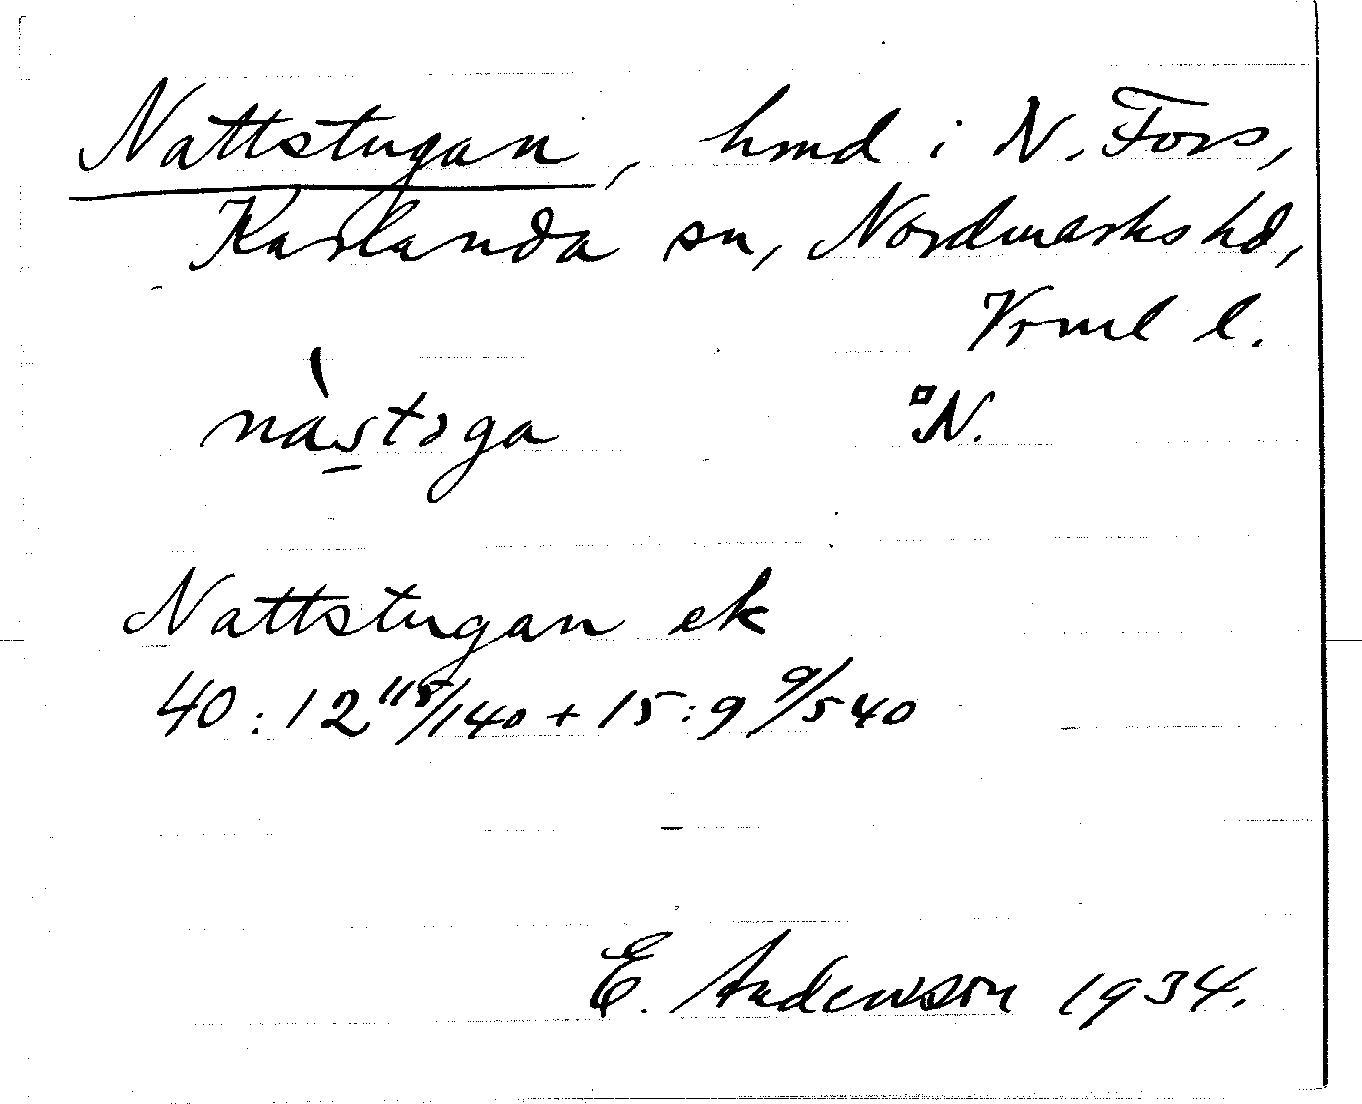 Nattstugan, hmd i N. Fors,
Karlanda sn, Nordmarks hd,
Vrml l.
nàstsga °N.
Nattstugan ek
40:12 115/140 + 15:9 9/540
E. Andersson 1934.